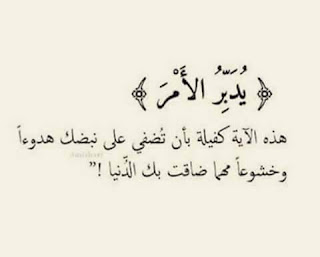 ﴿ يُدَبِّرُ الأَمْرَ ﴾
هذه الآية كفيلة بأن تُضفي على نبضك هدوءاً
وخشوعاً مهما ضاقت بك الدُّنيا !”